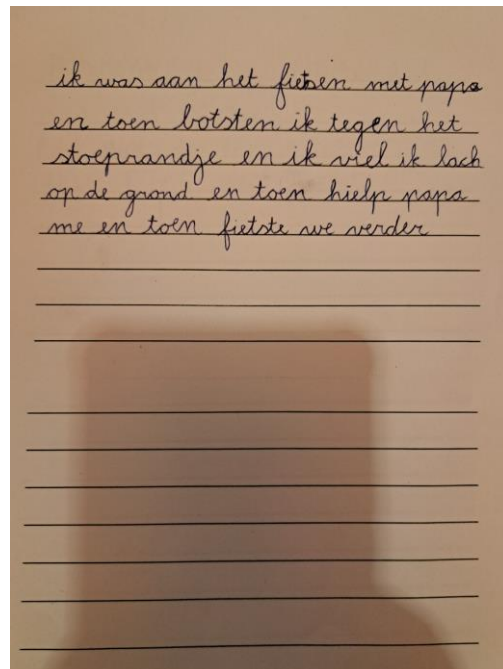 ik was aan het fietsen met papa
en toen botsten ik tegen het
stoeprandje en ik viel ik lach
op de grond en toen hielp papa
me en toen fietste we verder